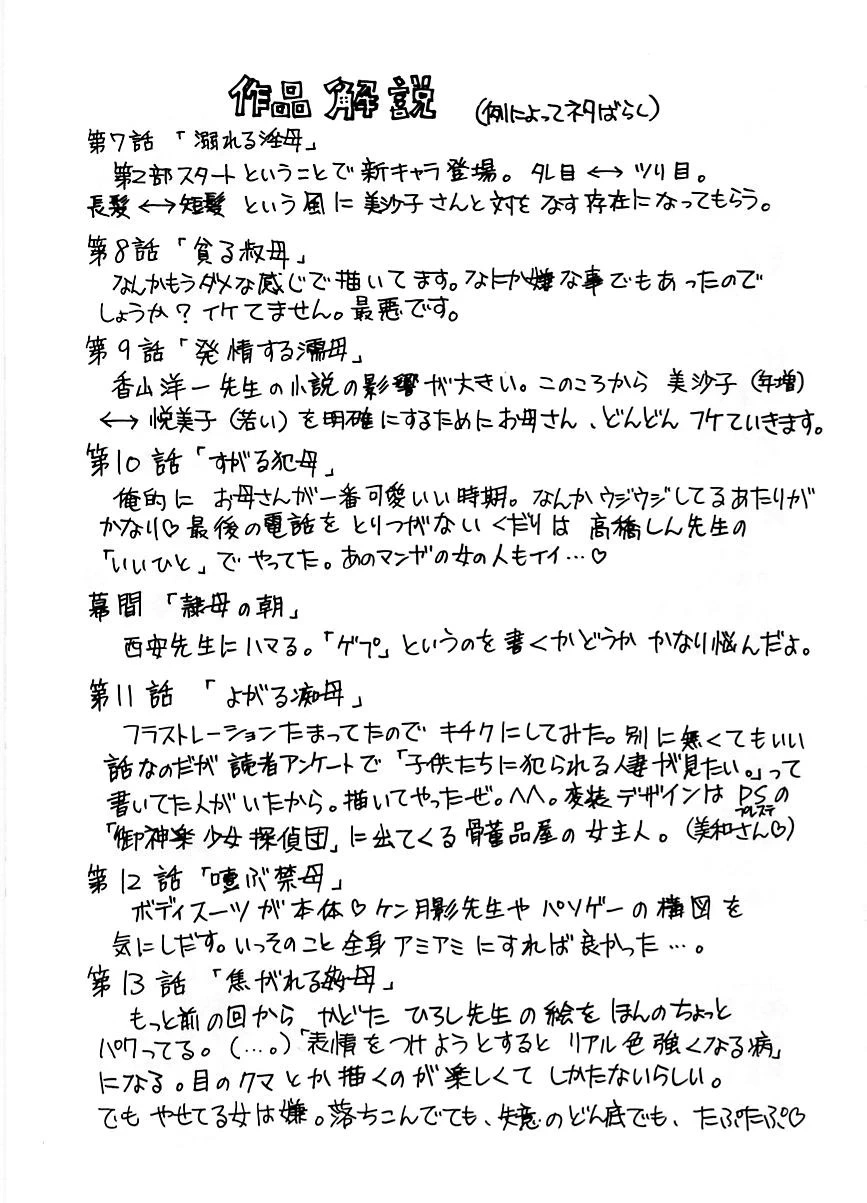 作品解説 (例によってネタばらし)
第7話 「溺れる淫母」
第2部スタートということで新キャラ登場。タレ目⟷ツリ目。
長髪⟷短髪 という風に美沙子さんと対をなす存在になってもらう。
第8話「貪る叔母」
なんかもうダメな感じで描いてます。なにか嫌な事でもあったので
しょうか?イケてません。最悪です。
第9話「発情する濡母」
香山洋一先生の小説の影響が大きい。このころから 美沙子(年増)
⟷ 悦美子(若い)を明確にするためにお母さん、どんどんフケていきます。
第10話「すがる犯母」
俺的に お母さんが一番可愛いい時期。なんかウジウジしてるあたりが
かなり♡最後の電話をとりつがないくだりは 高橋しん先生の
「いいひと」でやってた。あのマンガの女の人もイイ…♡
幕間「隷母の朝」
西安先生にハマる。「ゲプ」というのを書くかどうか かなり悩んだよ。
第11話 「よがる痴母」
フラストレーションたまってたので キチクにしてみた。別に無くてもいい
話なのだが 読者アンケートで「子供たちに犯られる人妻が見たい。」って
書いてた人がいたから。描いてやったぜ。ヘヘ。変装デザインは PSの
プレステ
「御神楽少女探偵団」に出てくる骨董品屋の女主人。(美和さん♡)
第12話「噎ぶ禁母」
ボディスーツが本体♡ケン月影先生や パソゲーの構図を
気にしだす。いっそのこと 全身アミアミにすれば良かった…。
第13話「焦がれる母」
もっと前の回から かどたひろし先生の絵をほんのちょっと
パクってる。(…。)「表情をつけようとすると リアル色強くなる病」
になる。目のクマとか描くのが楽しくてしかたないらしい。
でも やせてる女は嫌。落ちこんでても、失意のどん底でも、たぷたぷ♡